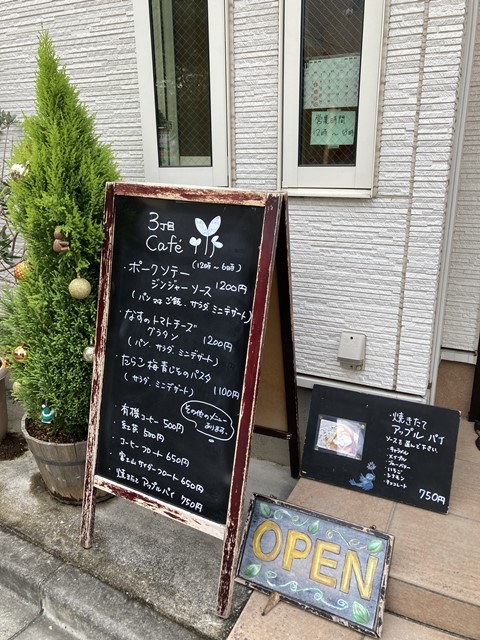 営業時間
12時～18時
3丁目
Café
(12時～6時)
・ポークソテー
ジンジャーソース 1200円
(パン or ご飯、サラダ、ミニデザート)
・なすのトマトチーズ
グラタン 1200円
(パン、サラダ、ミニデザート)
・たらこ梅青じそのパスタ
(サラダ、ミニデザート) 1100円
その他のメニュー
あります。
・有機コーヒー 500円
・紅茶 600円
・コーヒーフロート 650円
・富士山サイダーフロート 650円
・焼きたてアップルパイ 750円
・焼きたて
アップルパイ
ソースを選んで下さい。
・キャラメル
・メイプル
・ブルーベリー
・いちご
・シナモン
・チョコレート
750円
OPEN